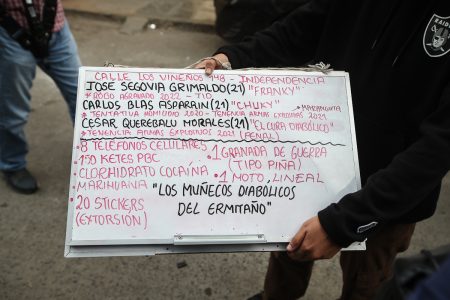 CALLE LOS VIÑEÑOS 948 - INDEPENDENCIA
JOSE SEGOVIA GRIMALDO(21) "FRANKY"
* ROBO AGRAVADO 2022 - TID
CARLOS BLAS ASPARRIN(21) "CHUKY" * MARANGUITA
* TENTATIVA HOMICIDIO 2020 - TENENCIA ARMAS EXPLOSIVAS 2021
CESAR QUEREBALU MORALES(21) "EL CURA DIABÓLICO"
* TENENCIA ARMAS EXPLOSIVOS 2021 (PENAL)
* 8 TELÉFONOS CELULARES
* 150 KETES PBC
* CLORHIDRATO COCAÍNA
* MARIHUANA
* 20 STICKERS
(EXTORSIÓN)
* 1 GRANADA DE GUERRA
(TIPO PIÑA)
* 1 MOTO LINEAL
"LOS MUÑECOS DIABÓLICOS
DEL ERMITAÑO"
RAIDERS